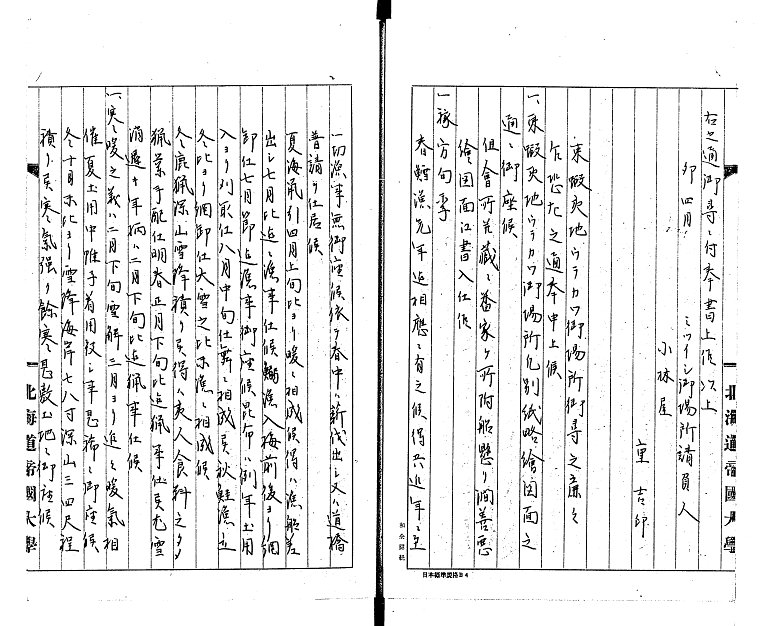 右之通御尋ニ付奉書上候以上
卯四月
ミツイシ御場所請負人
小林屋
重吉印
東蝦夷地ウラカワ御場所御尋之廉々
乍恐左之通奉申上候
一、東蝦夷地ウラカワ御場所凡別紙略絵図面之
通ニ御座候
但会所元蔵々番家ヶ所附船懸り澗善悪
絵図面江書入仕候
一稼方旬季
春鰊漁先年迄相應ニ有之候得共近年ニ至
一切漁事無御座候依り春中ハ薪伐出し又ハ道繕
普請等仕居候
夏海鼠引四月上旬比ヨリ暖ニ相成候得ハ漁船差
出し七月比迄ニ漁事仕候 漁入梅前後ヨリ網
卸仕七月節迄漁事御座候昆布ハ例年土用
入ヨリ刈取仕八月中旬仕舞ニ相成申秋鮭漁ハ
冬比ヨリ網卸仕大雪之比 漁ニ相成候
冬鹿猟深山雪降積り候得ハ夷人食料之タメ
猟業手配仕明春正月下旬比迄猟事仕尤雪
消遅キ年柄ハ二月下旬比迄猟事仕候
一、寒暖之義ハ二月下旬雪解三月ヨリ追々暖気相
催夏土用中帷子着用致し事悉稀ニ御座候
冬十月末比ヨリ雪降海岸七八寸深山三四尺程
積り 寒氣強り餘寒ニ甚敷土地ニ御座候
北海道帝國大學
北海道帝國大學
日本標準規格B4